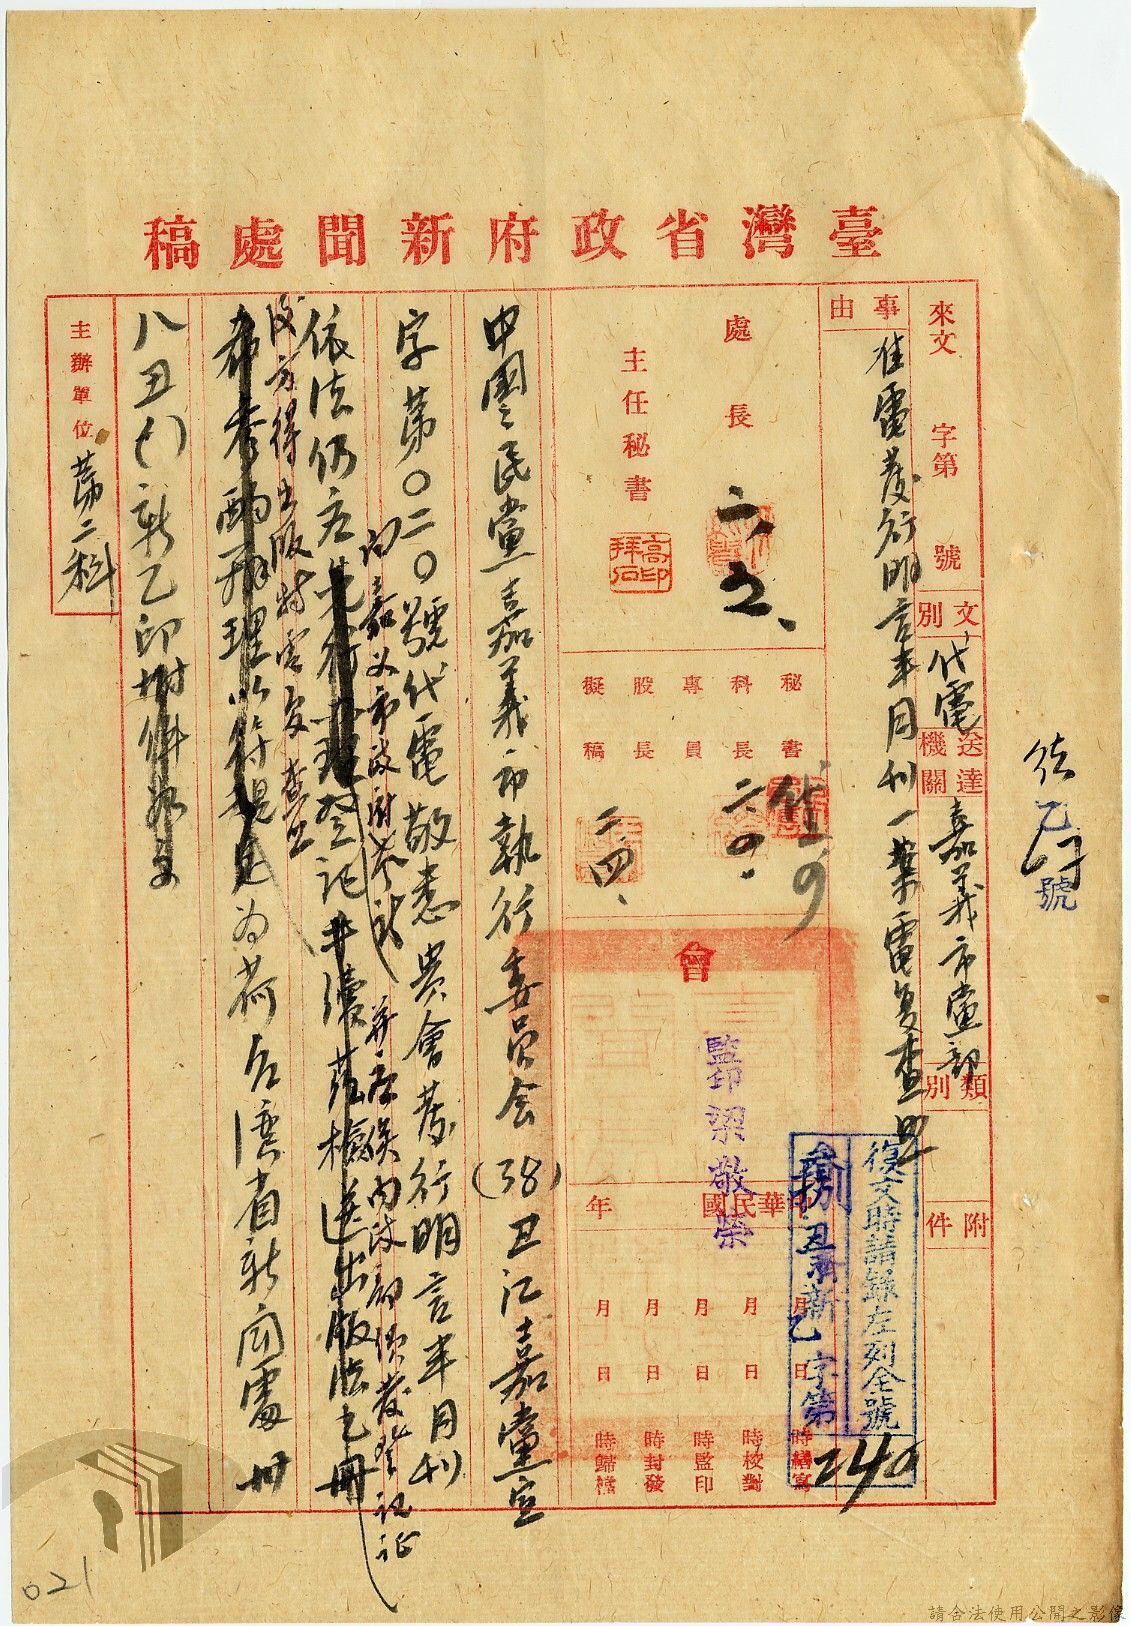 臺灣省政府新聞處稿
來文 字第 號
文別 代電
送達機關 嘉義市黨部
類別
附件
事由
准電發行明言半月刊一案電復查照
處長
主任秘書
秘書
科長
專員
股長
擬稿
二、四、
會
監印 梁敬榮
中華民國 年
月 日 時繕寫
月 日 時校對
月 日 時監印
月 日 時封發
月 日 時歸檔
復文時請錄左列全號
字第
240
號
中國國民黨嘉義市執行委員会(38)丑江嘉黨宣
字第〇二〇號代電敬悉貴會發行明言半月刊
向嘉义市政府
并應俟內政部頒發登記証
依法仍应先行辦理登記并續
檢送出版
後方得出版特電复查照
希查酌辦理以符規定為荷台灣省新聞處卅
八丑()新乙印
主辦單位 第二科
021
請合法使用公開之影像